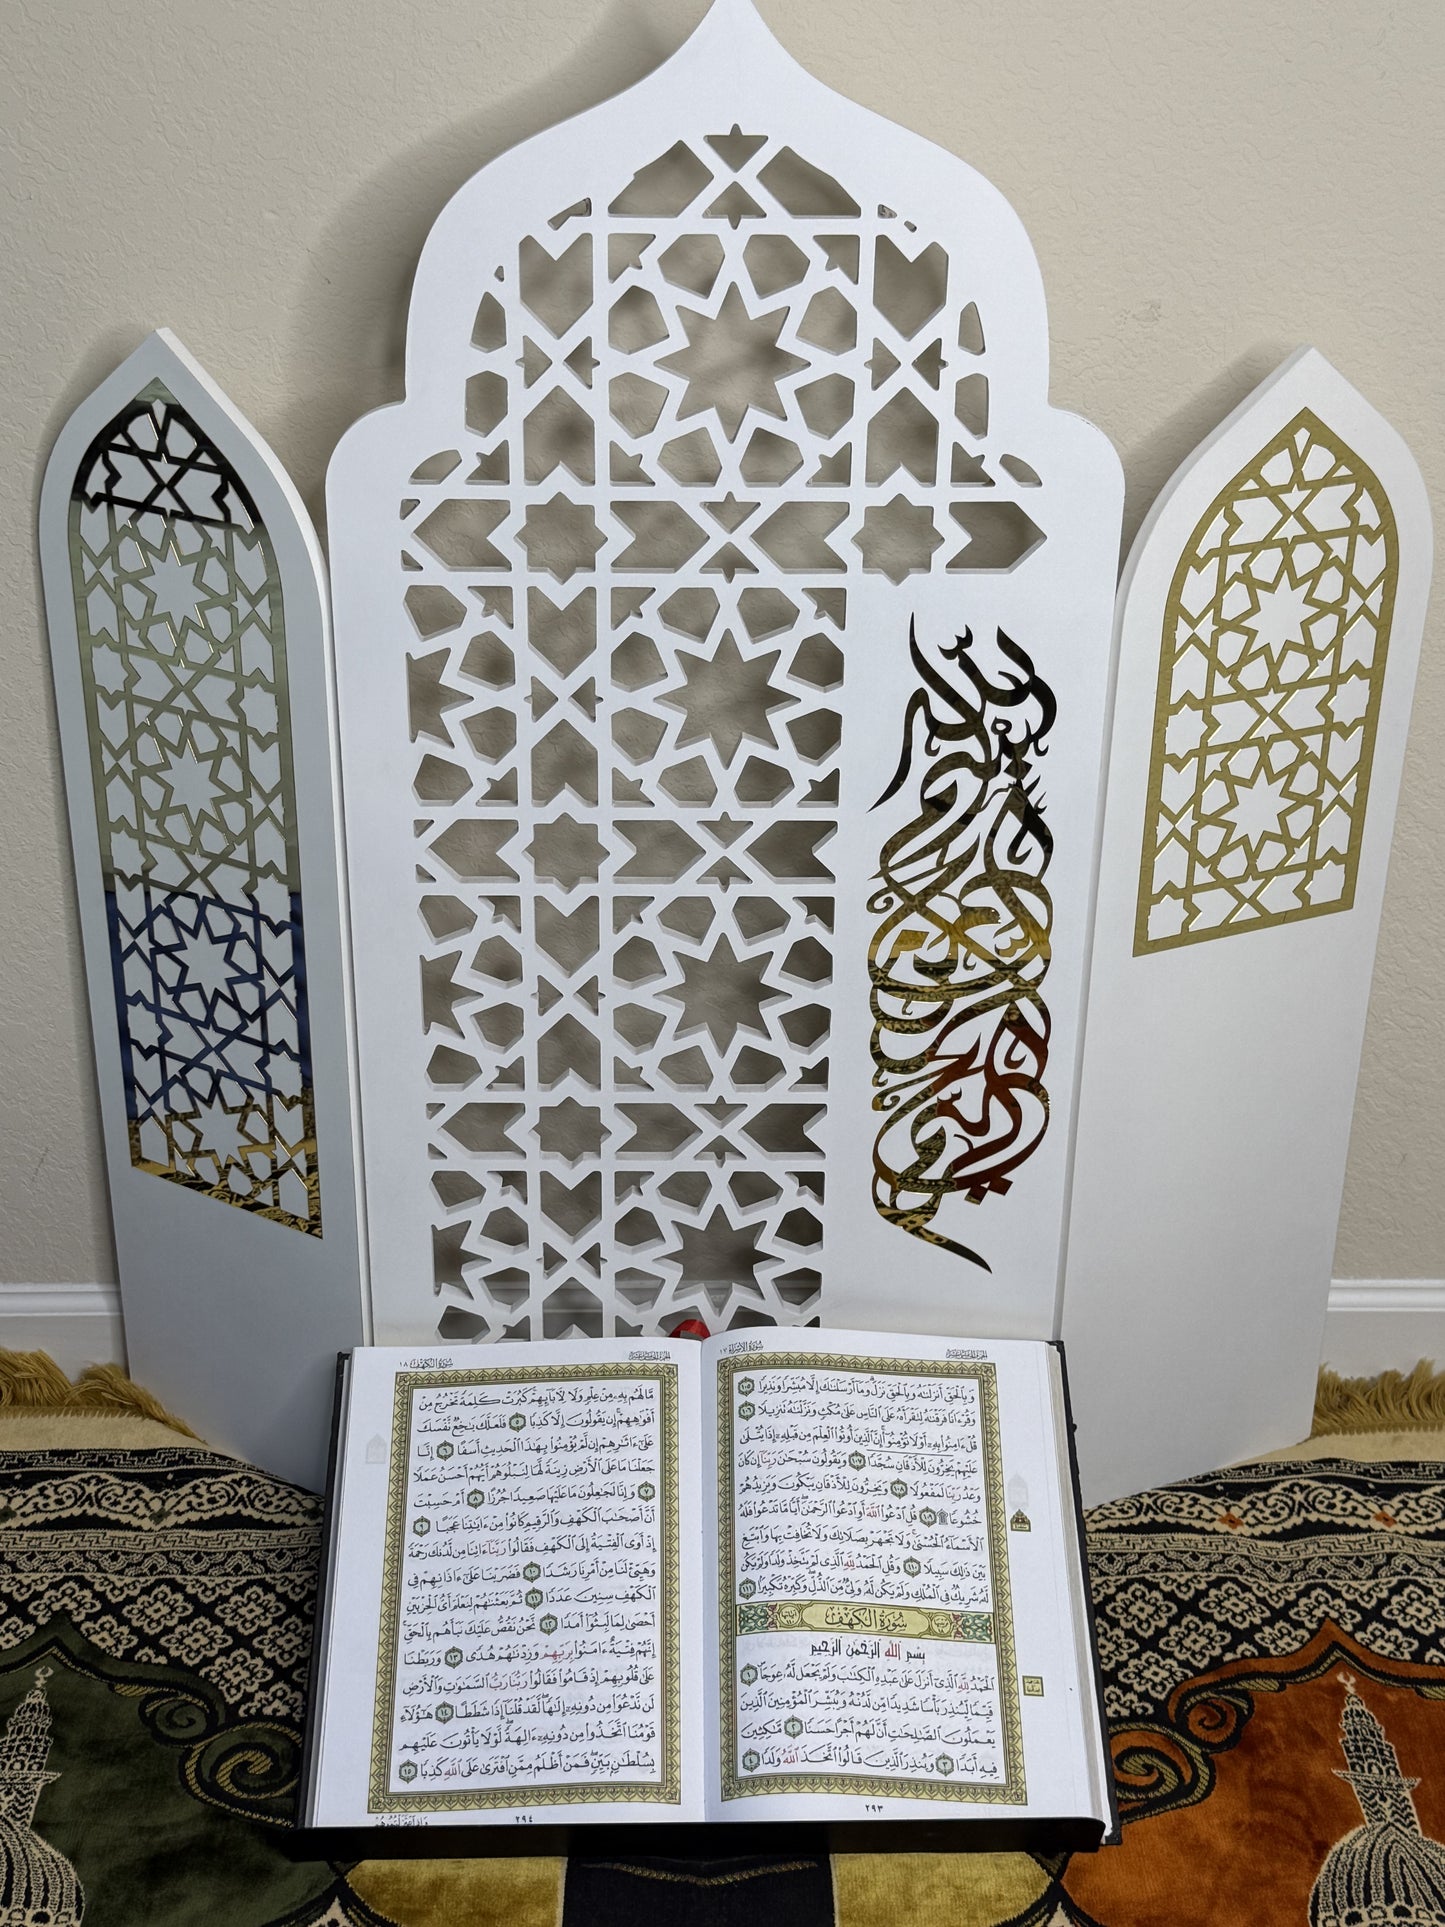 الجزء الخامس عشر
سُورَةُ الإِسْرَاءِ ١٧
وَبِٱلْحَقِّ أَنزَلْنَٰهُ وَبِٱلْحَقِّ نَزَلَۗ وَمَآ أَرْسَلْنَٰكَ إِلَّا مُبَشِّرًا وَنَذِيرًا ١٠٥
وَقُرْءَانًا فَرَقْنَٰهُ لِتَقْرَأَهُۥ عَلَى ٱلنَّاسِ عَلَىٰ مُكْثٍ وَنَزَّلْنَٰهُ تَنزِيلًا ١٠٦
قُلْ ءَامِنُوا۟ بِهِۦٓ أَوْ لَا تُؤْمِنُوٓا۟ۚ إِنَّ ٱلَّذِينَ أُوتُوا۟ ٱلْعِلْمَ مِن قَبْلِهِۦٓ إِذَا يُتْلَىٰ
عَلَيْهِمْ يَخِرُّونَ لِلْأَذْقَانِ سُجَّدًا ١٠٧ وَيَقُولُونَ سُبْحَٰنَ رَبِّنَآ إِن كَانَ
وَعْدُ رَبِّنَا لَمَفْعُولًا ١٠٨ وَيَخِرُّونَ لِلْأَذْقَانِ يَبْكُونَ وَيَزِيدُهُمْ
خُشُوعًا ۩ ١٠٩ قُلِ ٱدْعُوا۟ ٱللَّهَ أَوِ ٱدْعُوا۟ ٱلرَّحْمَٰنَۖ أَيًّا مَّا تَدْعُوا۟ فَلَهُ
ٱلْأَسْمَآءُ ٱلْحُسْنَىٰۚ وَلَا تَجْهَرْ بِصَلَاتِكَ وَلَا تُخَافِتْ بِهَا وَٱبْتَغِ
بَيْنَ ذَٰلِكَ سَبِيلًا ١١٠ وَقُلِ ٱلْحَمْدُ لِلَّهِ ٱلَّذِى لَمْ يَتَّخِذْ وَلَدًا وَلَمْ يَكُن
لَّهُۥ شَرِيكٌ فِى ٱلْمُلْكِ وَلَمْ يَكُن لَّهُۥ وَلِىٌّ مِّنَ ٱلذُّلِّۖ وَكَبِّرْهُ تَكْبِيرًۢا ١١١
سُورَةُ الكَهْفِ
بِسْمِ ٱللَّهِ ٱلرَّحْمَٰنِ ٱلرَّحِيمِ
ٱلْحَمْدُ لِلَّهِ ٱلَّذِىٓ أَنزَلَ عَلَىٰ عَبْدِهِ ٱلْكِتَٰبَ وَلَمْ يَجْعَل لَّهُۥ عِوَجَاۜ ١
قَيِّمًا لِّيُنذِرَ بَأْسًا شَدِيدًا مِّن لَّدُنْهُ وَيُبَشِّرَ ٱلْمُؤْمِنِينَ ٱلَّذِينَ
يَعْمَلُونَ ٱلصَّٰلِحَٰتِ أَنَّ لَهُمْ أَجْرًا حَسَنًا ٢ مَّٰكِثِينَ
فِيهِ أَبَدًا ٣ وَيُنذِرَ ٱلَّذِينَ قَالُوا۟ ٱتَّخَذَ ٱللَّهُ وَلَدًا ٤
٢٩٣
الجزء الخامس عشر
سُورَةُ الكَهْفِ ١٨
مَّا لَهُم بِهِۦ مِنْ عِلْمٍ وَلَا لِءَابَآئِهِمْۚ كَبُرَتْ كَلِمَةً تَخْرُجُ مِنْ
أَفْوَٰهِهِمْۚ إِن يَقُولُونَ إِلَّا كَذِبًا ٥ فَلَعَلَّكَ بَٰخِعٌ نَّفْسَكَ
عَلَىٰٓ ءَاثَٰرِهِمْ إِن لَّمْ يُؤْمِنُوا۟ بِهَٰذَا ٱلْحَدِيثِ أَسَفًا ٦ إِنَّا
جَعَلْنَا مَا عَلَى ٱلْأَرْضِ زِينَةً لَّهَا لِنَبْلُوَهُمْ أَيُّهُمْ أَحْسَنُ عَمَلًا
٧ وَإِنَّا لَجَٰعِلُونَ مَا عَلَيْهَا صَعِيدًا جُرُزًا ٨ أَمْ حَسِبْتَ
أَنَّ أَصْحَٰبَ ٱلْكَهْفِ وَٱلرَّقِيمِ كَانُوا۟ مِنْ ءَايَٰتِنَا عَجَبًا ٩
إِذْ أَوَى ٱلْفِتْيَةُ إِلَى ٱلْكَهْفِ فَقَالُوا۟ رَبَّنَآ ءَاتِنَا مِن لَّدُنكَ رَحْمَةً
وَهَيِّئْ لَنَا مِنْ أَمْرِنَا رَشَدًا ١٠ فَضَرَبْنَا عَلَىٰٓ ءَاذَانِهِمْ فِى
ٱلْكَهْفِ سِنِينَ عَدَدًا ١١ ثُمَّ بَعَثْنَٰهُمْ لِنَعْلَمَ أَىُّ ٱلْحِزْبَيْنِ
أَحْصَىٰ لِمَا لَبِثُوٓا۟ أَمَدًا ١٢ نَّحْنُ نَقُصُّ عَلَيْكَ نَبَأَهُم بِٱلْحَقِّۚ
إِنَّهُمْ فِتْيَةٌ ءَامَنُوا۟ بِرَبِّهِمْ وَزِدْنَٰهُمْ هُدًى ١٣ وَرَبَطْنَا
عَلَىٰ قُلُوبِهِمْ إِذْ قَامُوا۟ فَقَالُوا۟ رَبُّنَا رَبُّ ٱلسَّمَٰوَٰتِ وَٱلْأَرْضِ
لَن نَّدْعُوَا۟ مِن دُونِهِۦٓ إِلَٰهًاۖ لَّقَدْ قُلْنَآ إِذًا شَطَطًا ١٤ هَٰٓؤُلَآءِ
قَوْمُنَا ٱتَّخَذُوا۟ مِن دُونِهِۦٓ ءَالِهَةًۖ لَّوْلَا يَأْتُونَ عَلَيْهِم
بِسُلْطَٰنٍۭ بَيِّنٍۖ فَمَنْ أَظْلَمُ مِمَّنِ ٱفْتَرَىٰ عَلَى ٱللَّهِ كَذِبًا ١٥
٢٩٤